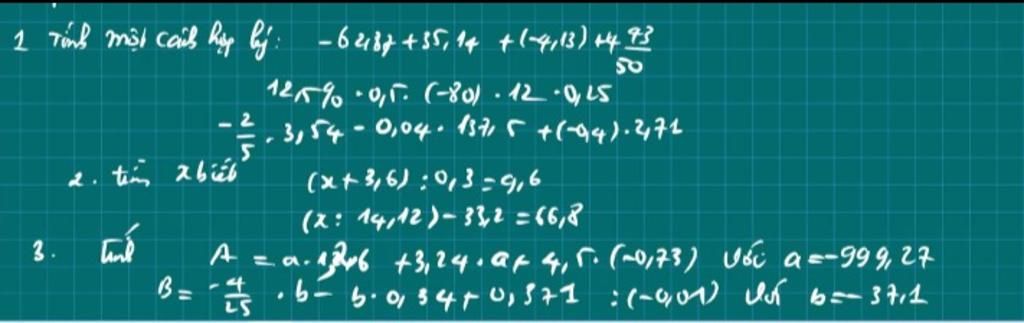 1 Tính một cách hợp lý: -62,87 + 35,14 + (-4,13) + 4 93/50
12,5% . 0,5 . (-80) . 12 . 0,25
-2/5 . 3,54 - 0,04 . 137,5 + (-0,4) . 2,71
2. tìm x biết (x + 3,6) : 0,3 = 9,6
(x : 14,12) - 33,2 = 66,8
3. Tính A = a . + 3,24 . a + 4,5 . (-0,73) với a = -999,27
B = -4/25 . b - b . 0,34 + 0,371 : (-0,01) với b = -37,1